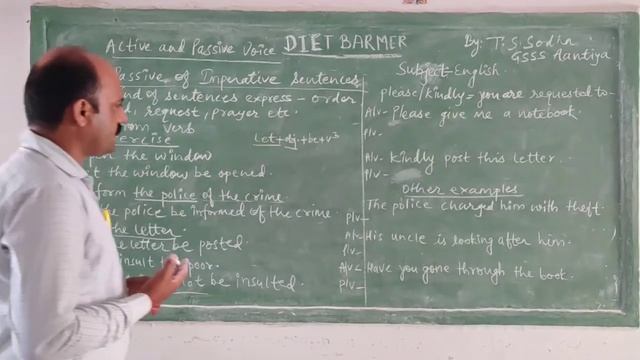 Active and Passive Voice
DIET BARMER
By: T.S. Sodha
GSSS Aantiya
Subject - English
Passive of Imperative sentences
nd of sentences express - order
d, request, prayer etc.
verb
Let + obj + be + v³
exercise
the window
t the window be opened.
form the police of the crime
the police be informed of the crime.
the letter
he letter be posted
insult the poor.
not be insulted.
please/kindly = you are requested to-
A/v- Please give me a notebook.
P/v-
A/v- Kindly post this letter.
P/v-
Other examples
The police charged him with theft.
P/v-
A/v- His uncle is looking after him.
P/v-
A/v- Have you gone through the book.
P/v-